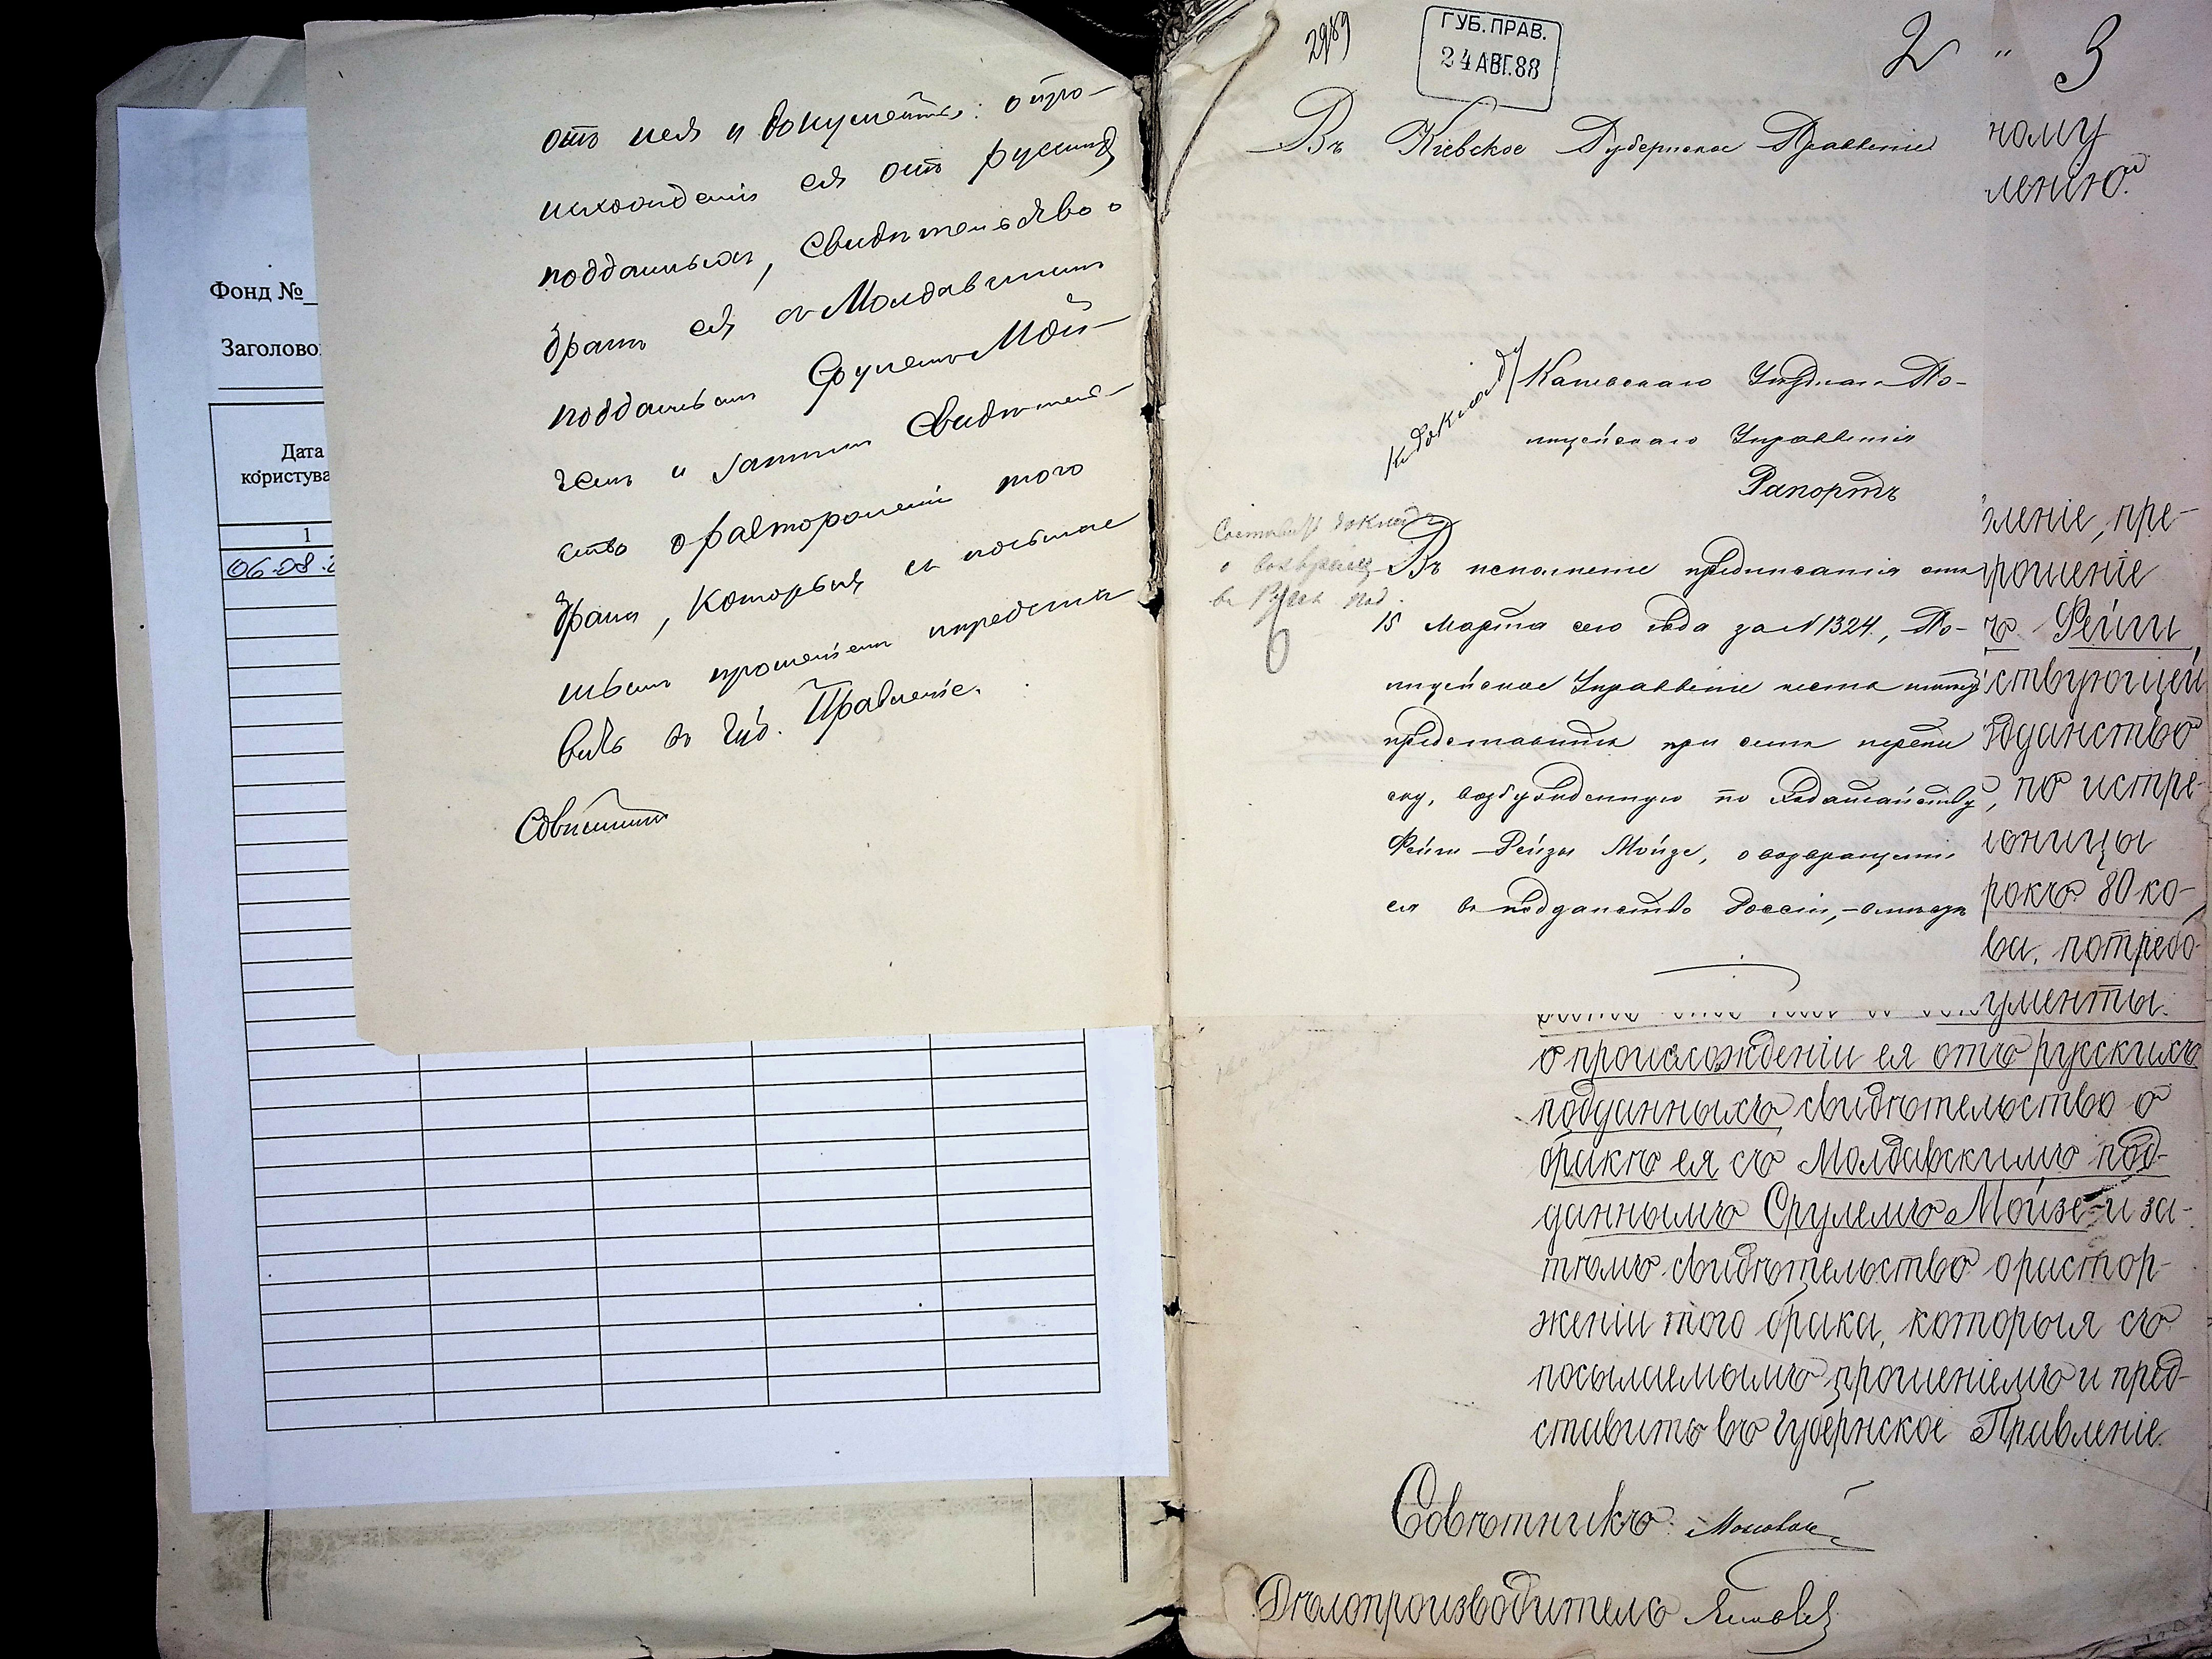 Фонд №
Заголово
Дата
користува
1
06.08.2
отъ нея и документы: о про-
исхожденіи ея отъ русскихъ
подданныхъ, свидѣтельство о
бракѣ ея съ Молдавскимъ
подданнымъ Срулемъ Мой-
земъ и затѣмъ свидѣтель-
ство о расторженіи того
брака, которыя съ посылае
мымъ прошеніемъ предста
вить въ Губ. Правленіе.
Совѣтникъ
2989
ГУБ. ПРАВ.
24 АВГ. 88
2 " 3
Въ Кіевское Губернское Правленіе
Каневскаго Уѣзднаго По-
лицейскаго Управленія
Рапортъ
къ докладу
Составить докладъ
о возвращ
въ Русск. под.
Въ исполненіе предписанія отъ
15 Марта сего года за № 1324, По-
лицейское Управленіе имѣетъ честь
представить при семъ перепи
ску, возбужденную по ходатайству
Фейги-Рейзы Мойзе, о возвращеніи
ея въ подданство Россіи,
ному
ленію.
вленіе, пре-
рошеніе
ъ Фейги
ствующей
дданство
, по истре-
ионицы
рокъ 80 ко-
ва, потребо-
ументы
о происхожденіи ея отъ русскихъ
подданныхъ свидѣтельство о
бракѣ ея съ Молдавскимъ под-
даннымъ Срулемъ Мойзе и за-
тѣмъ свидѣтельство о растор-
женіи того брака, которыя съ
посылаемымъ прошеніемъ и пред-
ставить въ Губернское Правленіе.
Совѣтникъ
Дѣлопроизводитель